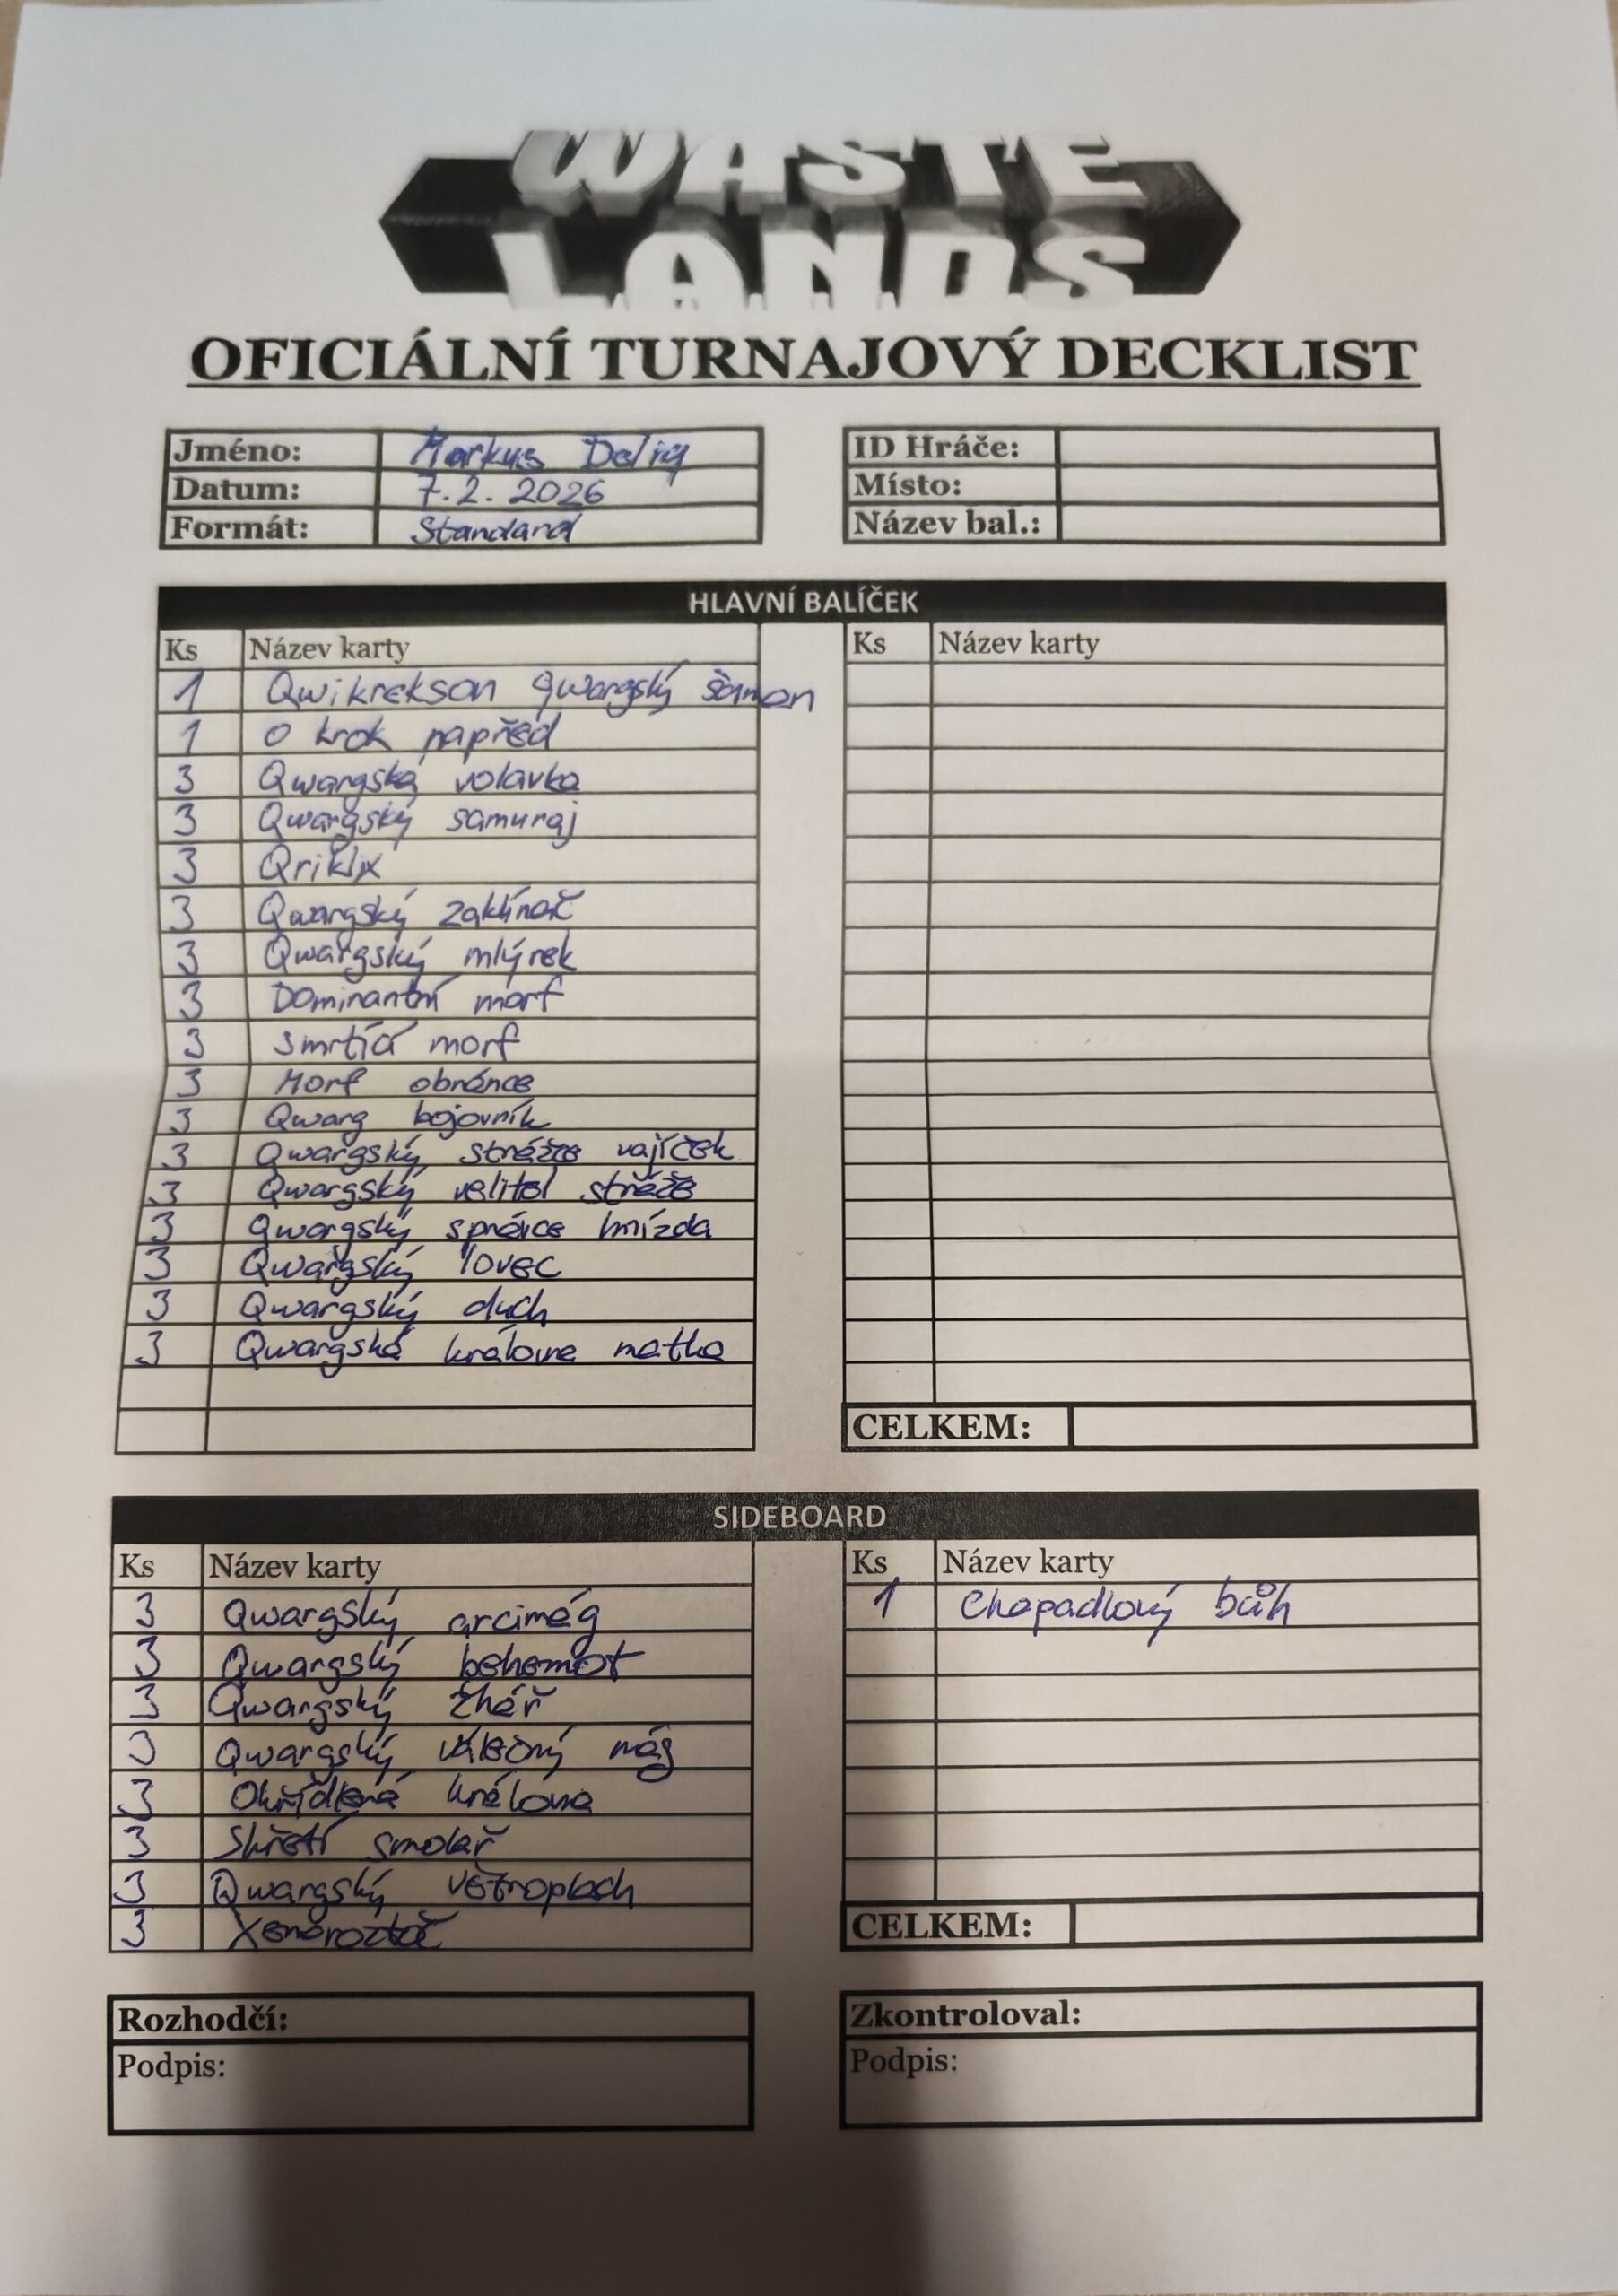 WASTE
LANDS
OFICIÁLNÍ TURNAJOVÝ DECKLIST
Jméno: Markus Deliq
Datum: 7.2.2026
Formát: Standard
ID Hráče:
Místo:
Název bal.:
HLAVNÍ BALÍČEK
Ks Název karty Ks Název karty
1 Qwikrekson qwargský šaman
1 O krok napřed
3 Qwargská volavka
3 Qwargský samuraj
3 Qriklix
3 Qwargský zaklínač
3 Qwargský mlýrek
3 Dominantní morf
3 Smrtící morf
3 Morf obránce
3 Qwarg bojovník
3 Qwargský strážce vajíček
3 Qwargský velitel stráže
3 Qwargský správce hnízda
3 Qwargský lovec
3 Qwargský duch
3 Qwargská královna matka
CELKEM:
SIDEBOARD
Ks Název karty Ks Název karty
3 Qwargský arcimág 1 Chapadlový bůh
3 Qwargský behemot
3 Qwargský žhář
3 Qwargský válečný mág
3 Okřídlená královna
3 Skřetí smolař
3 Qwargský větroplach
3 Xenoroztoč
CELKEM:
Rozhodčí: Zkontroloval:
Podpis: Podpis: